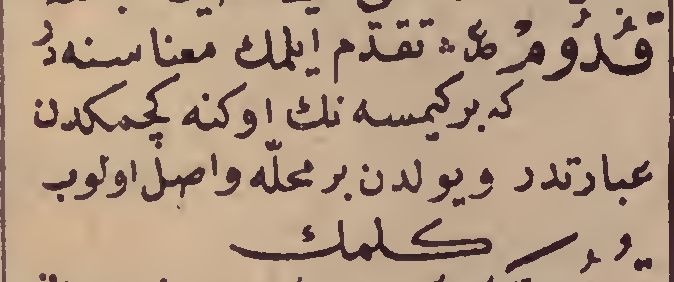 قُدُومْ تقدّم ايلمك معناسنه دُر
كه بر كيمسه نك اوكنه كچمكدن
عبارتدر و يولدن بر محلّه واصل اولوب
كلمك